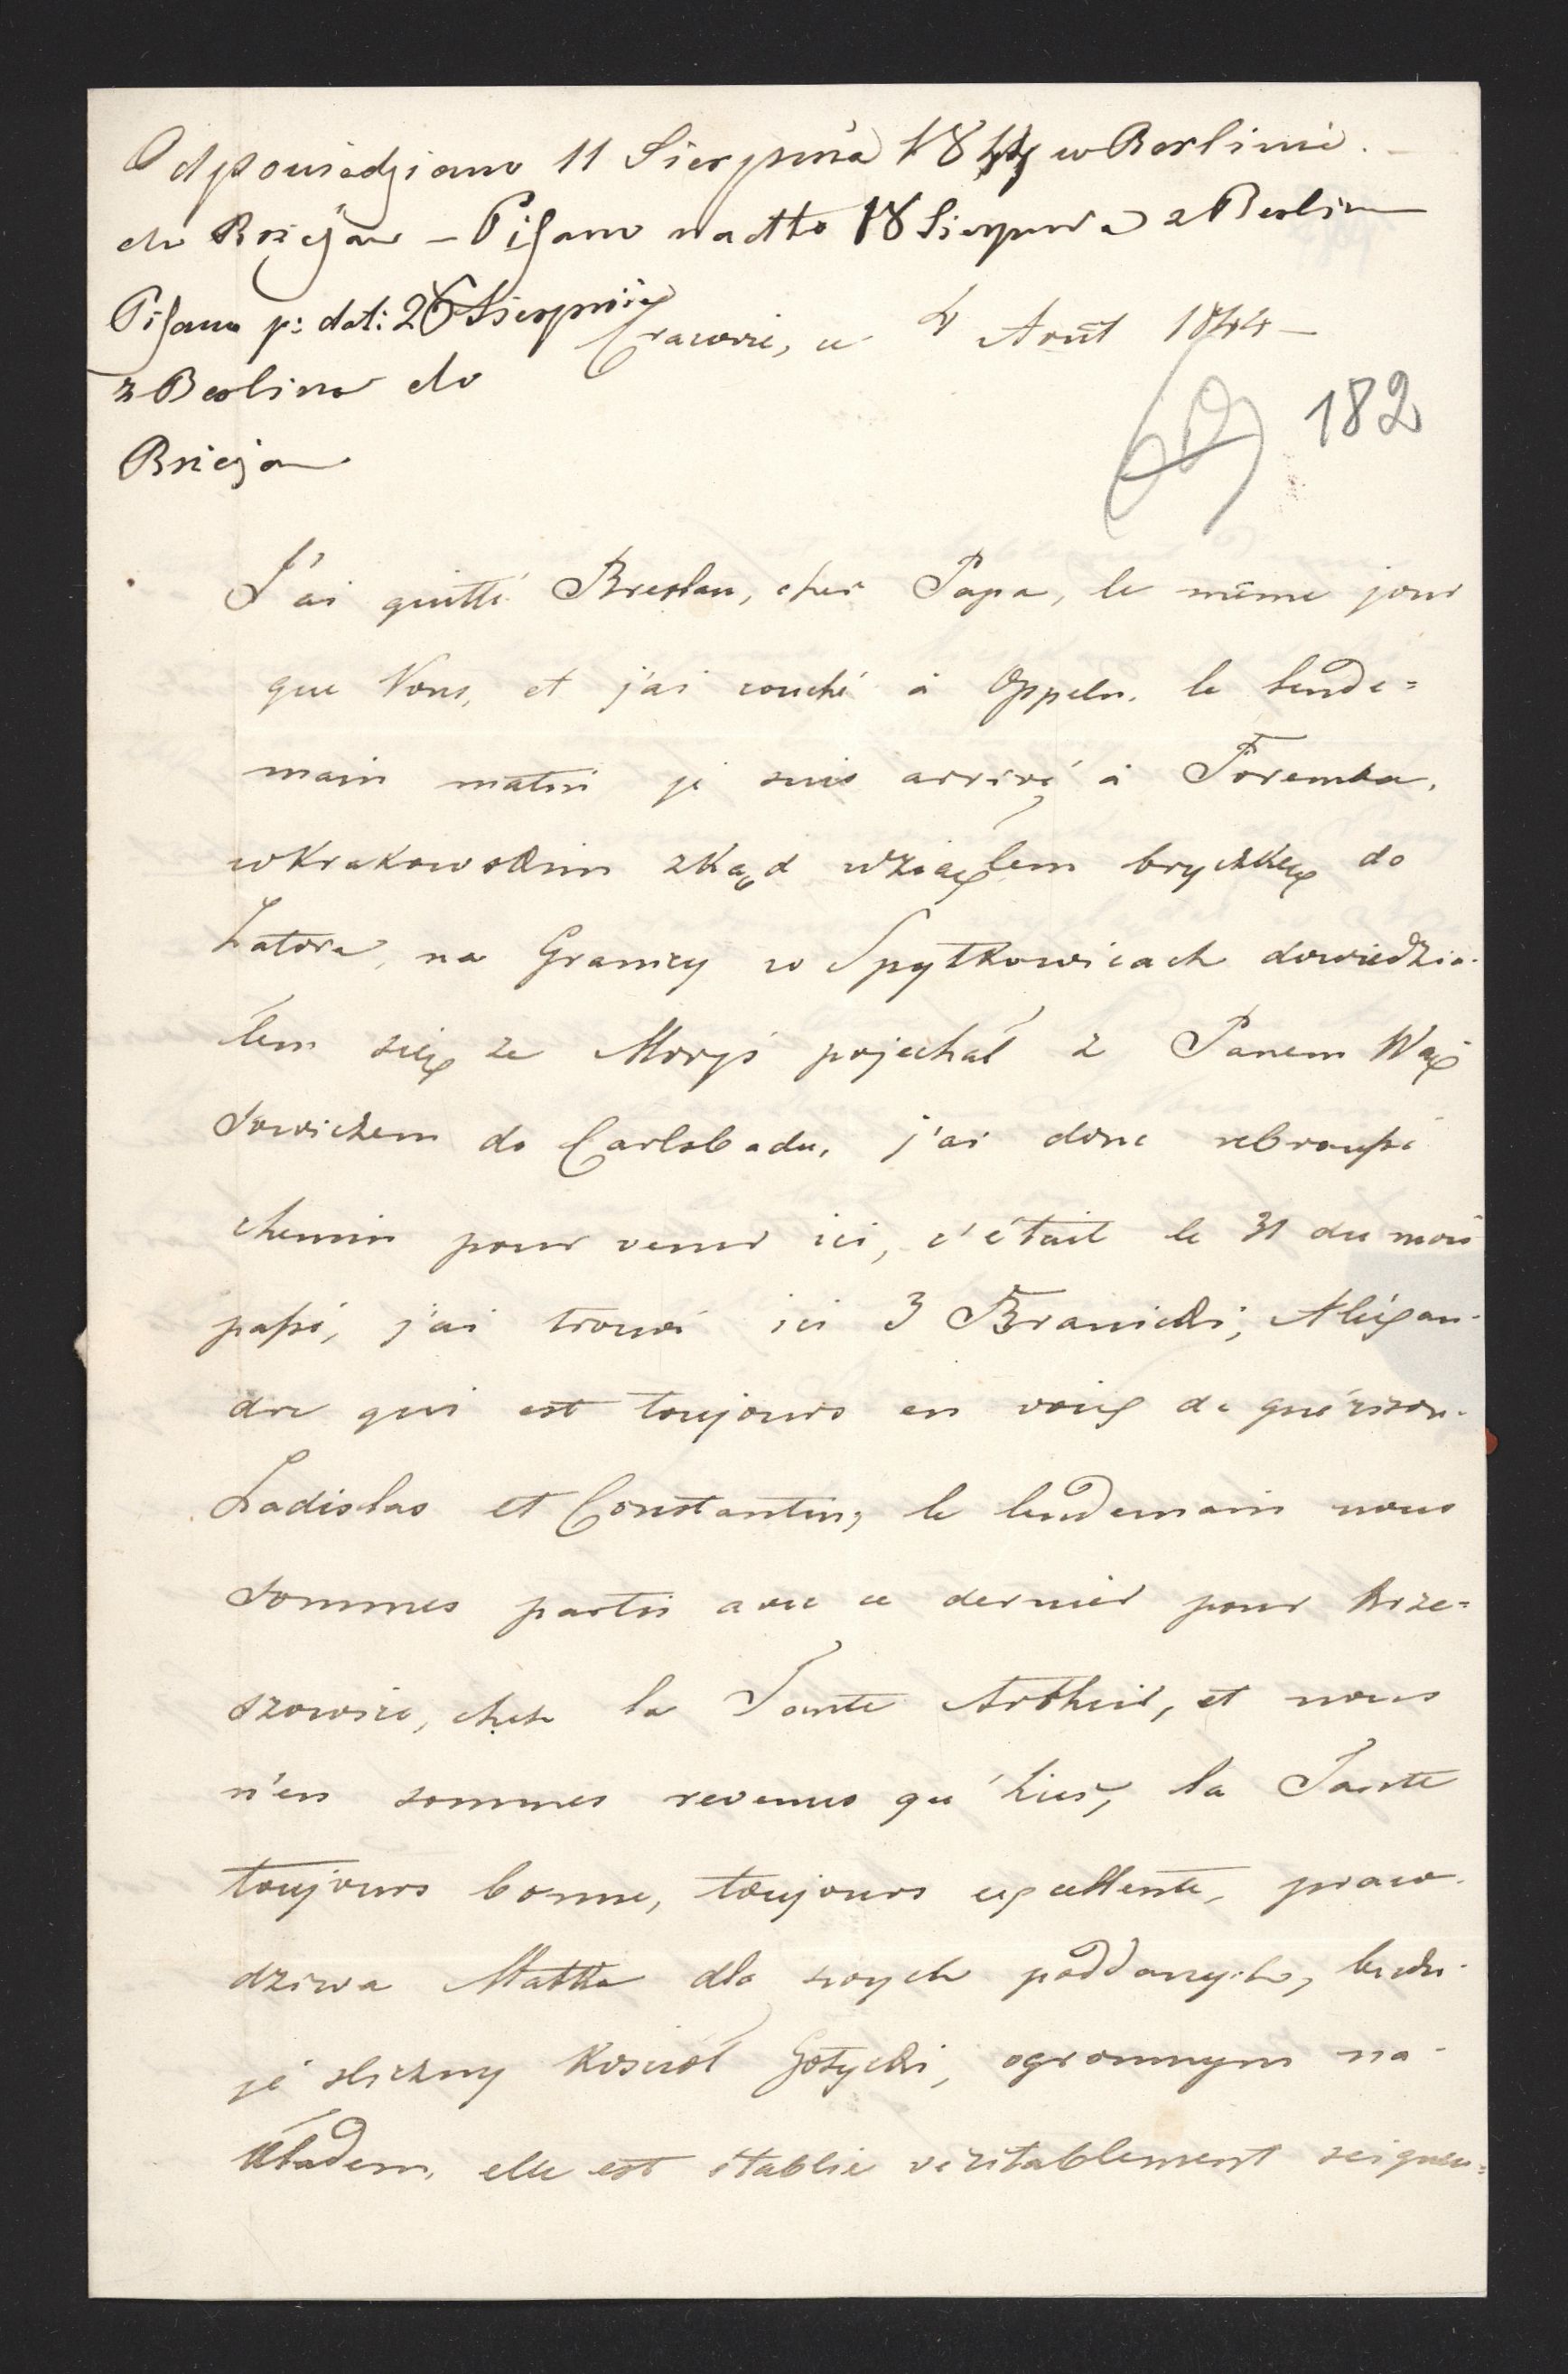 Odpowiedziano 11 Sierpnia 1844 w Berlinie.
do Brzeżan – Pisano nadto 18 Sierpnia z Berlina
Pisano p: dat: 26 Sierpnia
Cracovie, ce 4 Août 1844 –
z Berlina do
182
Brzeżan
J'ai quitté Breslau, cher Papa, le même jour
que Vous, et j'ai couché à Oppeln. le lende=
main matin je suis arrivé à Poremba,
w Krakowskim zkąd wziąłem bryczkę do
Zatora, na Granicy w Spytkowicach dowiedzia-
łem się ze Moryś pojechał z Panem Wą
sowiczem do Carlsbadu, j'ai donc rebroussé
chemin pour venir ici, c'était le 31 du mois
passé, j'ai trouvé ici 3 Branicki, Aléxan-
dre qui est toujours en voix de guérison.
Ladislas et Constantin, le lendemain nous
sommes partis avec ce dernier pour Krze=
szowice, chez la Tante Arthur, et nous
n'en sommes revenus qu'hier, la Tante
toujours bonne, toujours excellente, praw-
dziwa Matka dla swych poddanych, budu-
je sliczny Kosciół Gotycki, ogromnym na-
kładem, elle est établie véritablement seigneu=